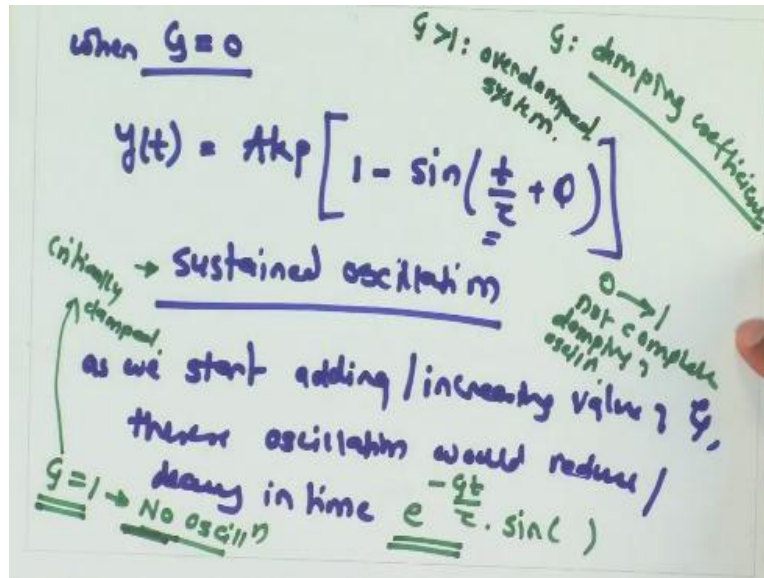 when ζ = 0
ζ: damping coefficient
ζ > 1: overdamped
system.
y(t) = Akp [ 1 - sin( t/τ + φ ) ]
critically
damped.
→ sustained oscillation
0 → 1
not complete
damping of
oscil^n
as we start adding / increasing value of ζ,
these oscillation would reduce /
decay in time e^(-ζt/τ) . sin( )
ζ = 1 → No oscill^n